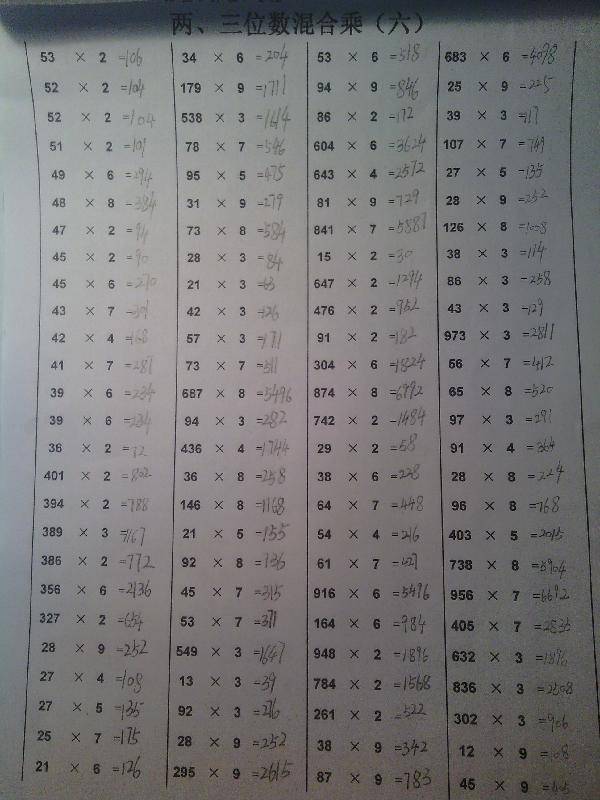 两、三位数混合乘（六）
53 × 2 =106 34 × 6 =204 53 × 6 =318 683 × 6 =4098
52 × 2 =104 179 × 9 =1711 94 × 9 =846 25 × 9 =225
52 × 2 =104 538 × 3 =1614 86 × 2 =172 39 × 3 =117
51 × 2 =101 78 × 7 =546 604 × 6 =3624 107 × 7 =749
49 × 6 =294 95 × 5 =475 643 × 4 =2572 27 × 5 =135
48 × 8 =384 31 × 9 =279 81 × 9 =729 28 × 9 =252
47 × 2 =94 73 × 8 =584 841 × 7 =5887 126 × 8 =1008
45 × 2 =90 28 × 3 =84 15 × 2 =30 38 × 3 =114
45 × 6 =270 21 × 3 =63 647 × 2 =1294 86 × 3 =258
43 × 7 =301 42 × 3 =126 476 × 2 =952 43 × 3 =129
42 × 4 =168 57 × 3 =171 91 × 2 =182 973 × 3 =2811
41 × 7 =287 73 × 7 =511 304 × 6 =1824 56 × 7 =412
39 × 6 =234 687 × 8 =5496 874 × 8 =6992 65 × 8 =520
39 × 6 =234 94 × 3 =282 742 × 2 =1484 97 × 3 =291
36 × 2 =72 436 × 4 =1744 29 × 2 =58 91 × 4 =364
401 × 2 =802 36 × 8 =258 38 × 6 =228 28 × 8 =224
394 × 2 =788 146 × 8 =1168 64 × 7 =448 96 × 8 =768
389 × 3 =1167 21 × 5 =155 54 × 4 =216 403 × 5 =2015
386 × 2 =772 92 × 8 =736 61 × 7 =427 738 × 8 =5904
356 × 6 =2136 45 × 7 =315 916 × 6 =5496 956 × 7 =6692
327 × 2 =654 53 × 7 =371 164 × 6 =984 405 × 7 =2835
28 × 9 =252 549 × 3 =1647 948 × 2 =1896 632 × 3 =1896
27 × 4 =108 13 × 3 =39 784 × 2 =1568 836 × 3 =2508
27 × 5 =135 92 × 3 =276 261 × 2 =522 302 × 3 =906
25 × 7 =175 28 × 9 =252 38 × 9 =342 12 × 9 =108
21 × 6 =126 295 × 9 =2615 87 × 9 =783 45 × 9 =405